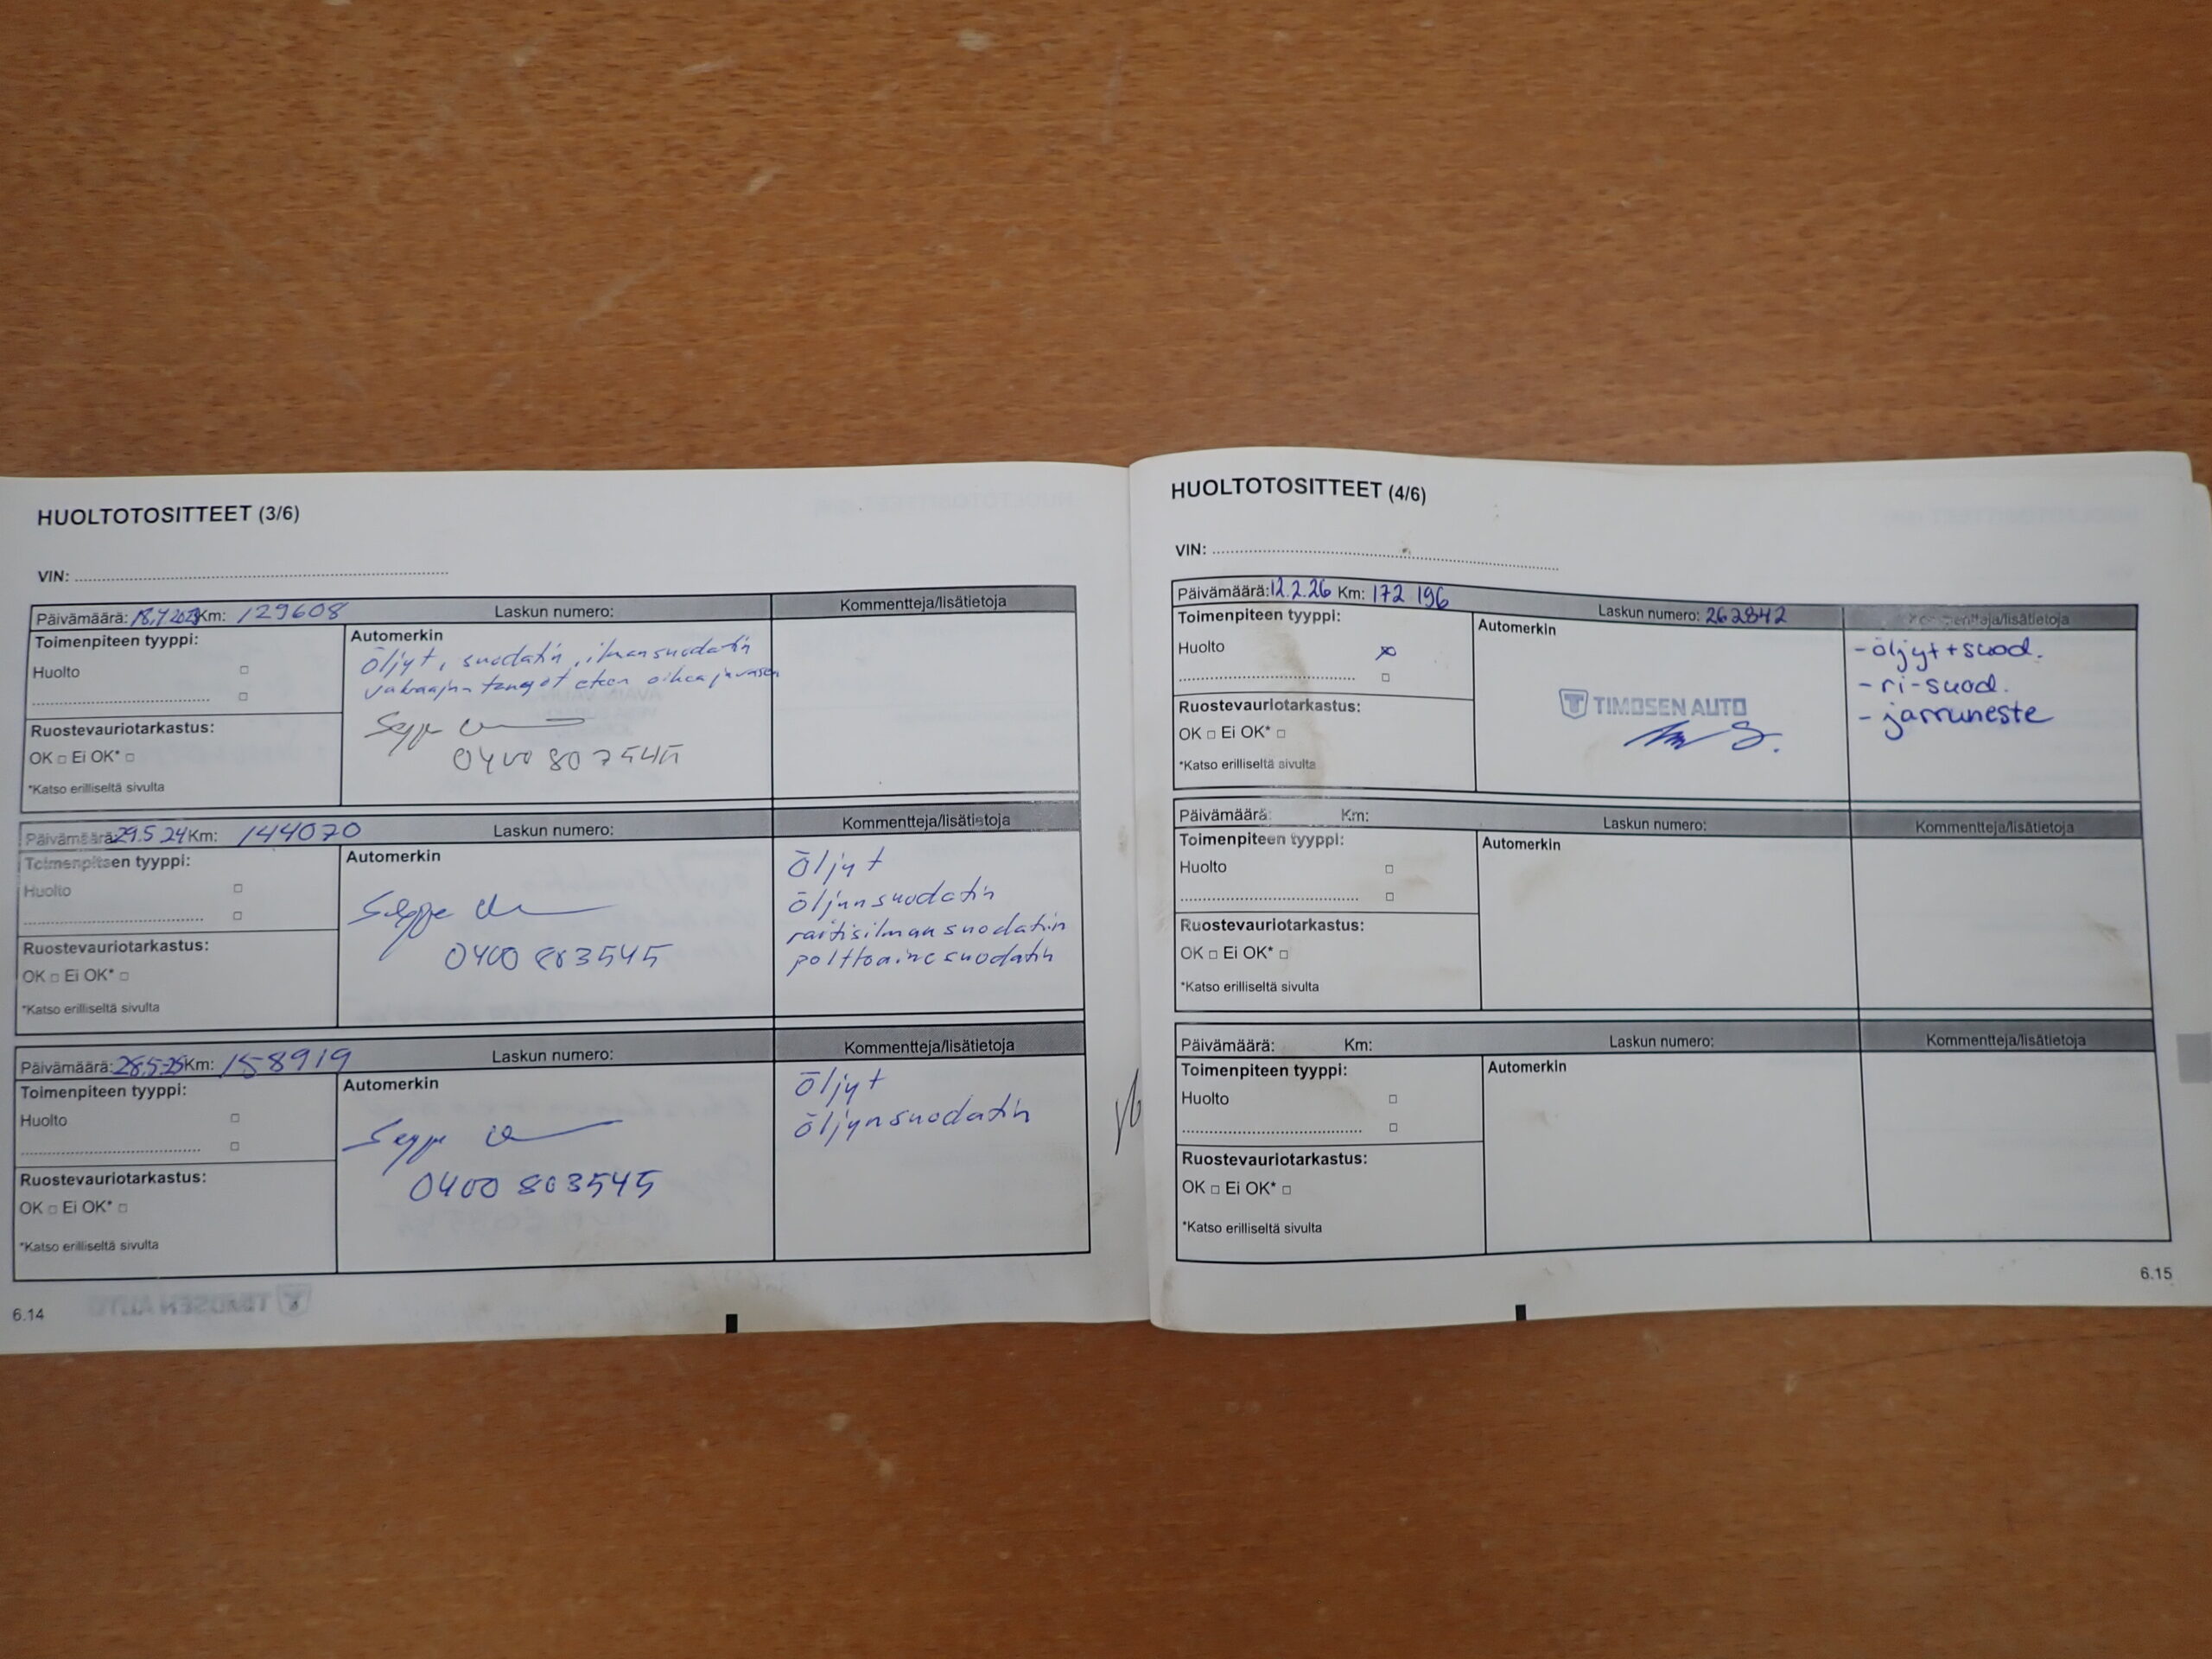 HUOLTOTOSITTEET (3/6)
VIN:
Päivämäärä: 18,7 2023 Km: 129608 Laskun numero: Kommentteja/lisätietoja
Toimenpiteen tyyppi:
Huolto
Automerkin
öljyt, suodatin, ilmansuodatin
vakaajan tangot eteen oikea ja vasen
Seppo
Ruostevauriotarkastus:
OK □ Ei OK* □
*Katso erilliseltä sivulta
Päivämäärä: 29.5 24 Km: 144070 Laskun numero: Kommentteja/lisätietoja
Toimenpiteen tyyppi:
Huolto
Automerkin
Seppo
0400 803545
öljyt
öljynsuodatin
raitisilmansuodatin
polttoainesuodatin
Ruostevauriotarkastus:
OK □ Ei OK* □
*Katso erilliseltä sivulta
Päivämäärä: 28.5.25 Km: 158919 Laskun numero: Kommentteja/lisätietoja
Toimenpiteen tyyppi:
Huolto
Automerkin
Seppo
0400 803545
öljyt
öljynsuodatin
Ruostevauriotarkastus:
OK □ Ei OK* □
*Katso erilliseltä sivulta
6.14
HUOLTOTOSITTEET (4/6)
VIN:
Päivämäärä: 12.2.26 Km: 172 196 Laskun numero: 262842 Kommentteja/lisätietoja
Toimenpiteen tyyppi:
Huolto
Automerkin
TIMOSEN AUTO
-öljyt+suod.
-ri-suod.
-jarruneste
Ruostevauriotarkastus:
OK □ Ei OK* □
*Katso erilliseltä sivulta
Päivämäärä: Km: Laskun numero: Kommentteja/lisätietoja
Toimenpiteen tyyppi:
Huolto
Automerkin
Ruostevauriotarkastus:
OK □ Ei OK* □
*Katso erilliseltä sivulta
Päivämäärä: Km: Laskun numero: Kommentteja/lisätietoja
Toimenpiteen tyyppi:
Huolto
Automerkin
Ruostevauriotarkastus:
OK □ Ei OK* □
*Katso erilliseltä sivulta
6.15